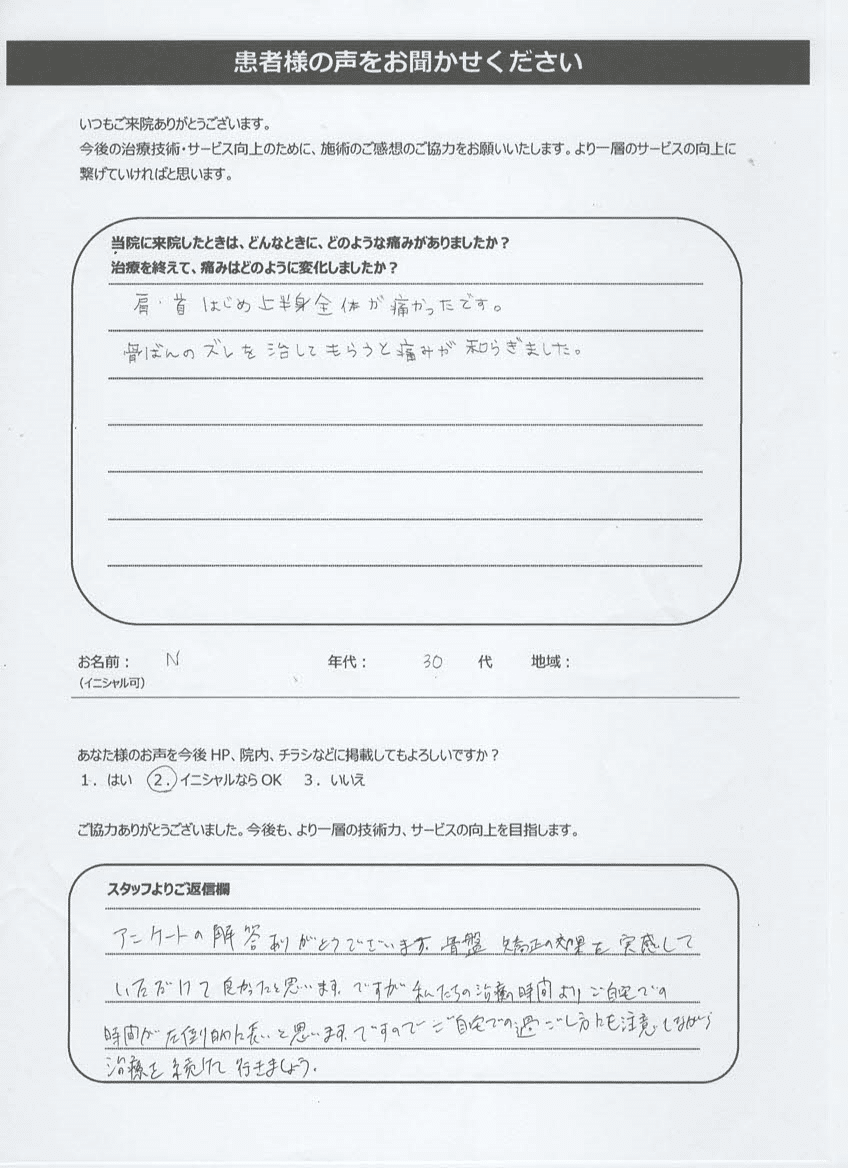 患者様の声をお聞かせください
いつもご来院ありがとうございます。
今後の治療技術・サービス向上のために、施術のご感想のご協力をお願いいたします。より一層のサービスの向上に
繋げていければと思います。
当院に来院したときは、どんなときに、どのような痛みがありましたか？
治療を終えて、痛みはどのように変化しましたか？
肩・首はじめ上半身全体が痛かったです。
骨ばんのズレを治してもらうと痛みが和らぎました。
お名前： N 年代： 30 代 地域：
（イニシャル可）
あなた様のお声を今後 HP、院内、チラシなどに掲載してもよろしいですか？
1．はい 2．イニシャルなら OK 3．いいえ
ご協力ありがとうございました。今後も、より一層の技術力、サービスの向上を目指します。
スタッフよりご返信欄
アンケートの解答ありがとうございます。骨盤矯正の効果を実感して
いただけて良かったと思います。ですが私たちの治療時間よりご自宅での
時間が圧倒的に長いと思います。ですのでご自宅での過ごし方にも注意しながら
治療を続けて行きましょう。